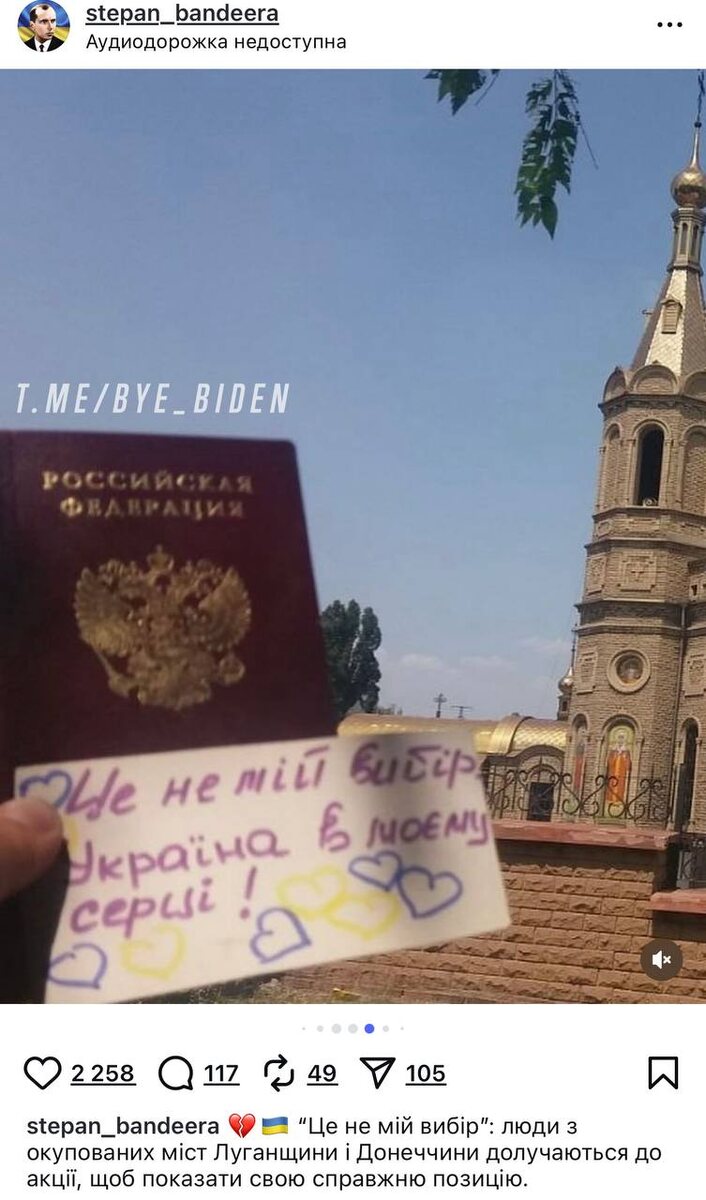 stepan_bandeera
Аудиодорожка недоступна
T.ME/BYE_BIDEN
РОССИЙСКАЯ
ФЕДЕРАЦИЯ
Це не мій вибір,
Україна в моєму
серці!
2 258
117
49
105
stepan_bandeera 💔 🇺🇦 “Це не мій вибір”: люди з
окупованих міст Луганщини і Донеччини долучаються до
акції, щоб показати свою справжню позицію.